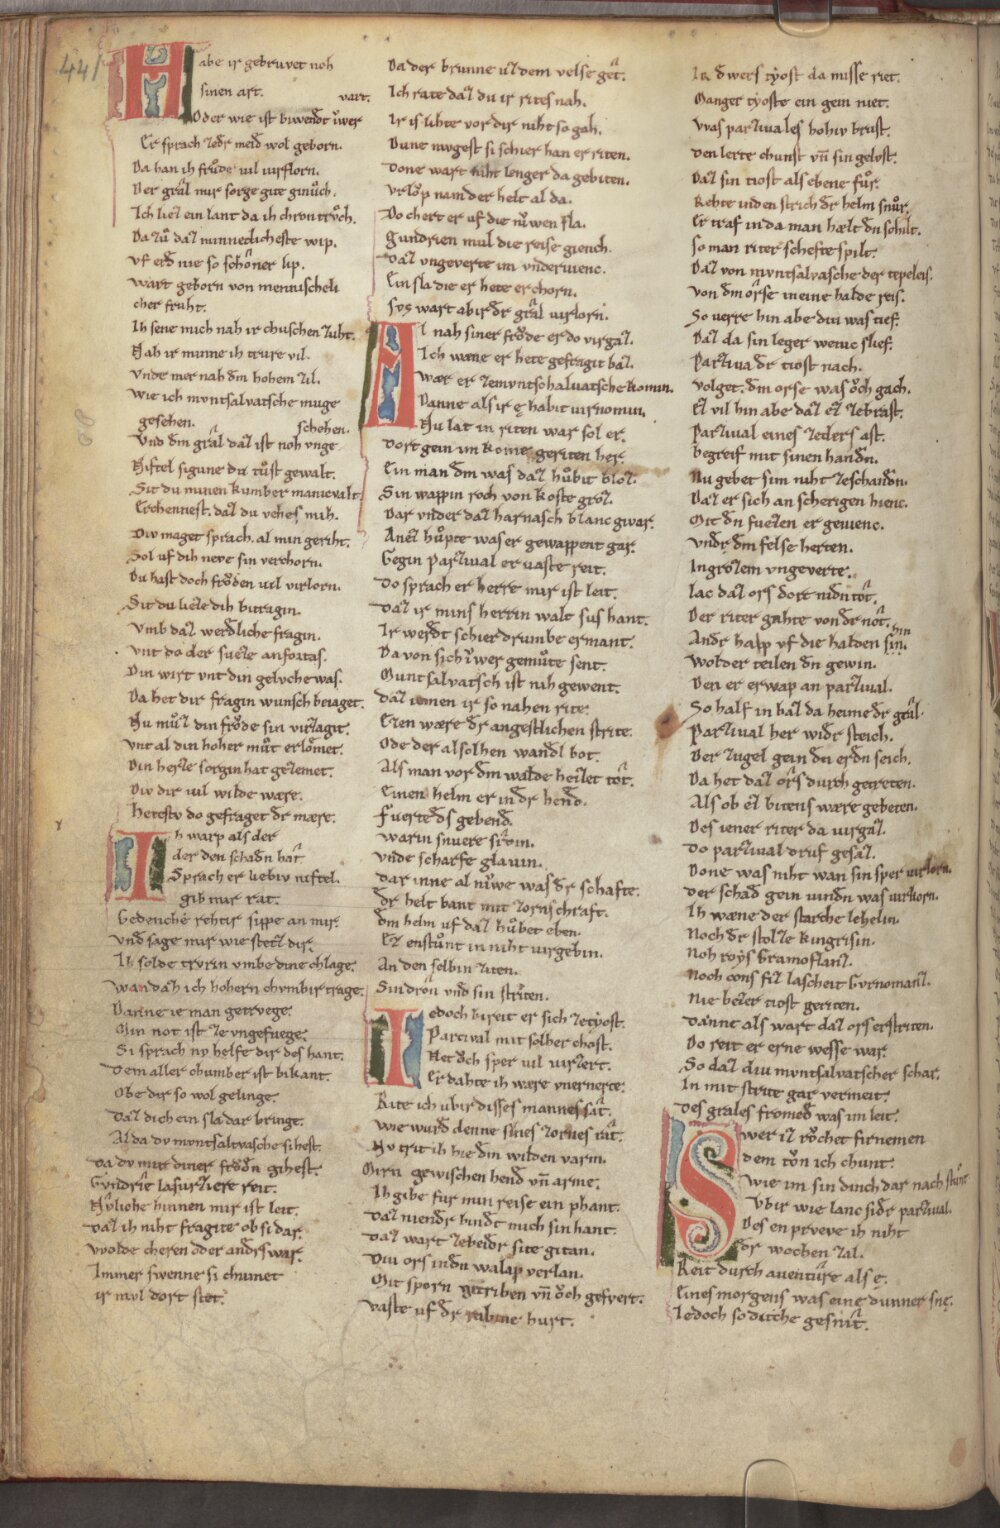 441
Habe ir gebruvet noh
sinen art. vart.
Oder wie ist biwendt uͦwer
Er sprach zedr meid wol geborn.
Da han ih frǔde vil virflorn.
Der grâl mir sorge gite ginuͦch.
Ich liez ein lant da ih chron trǒch.
Da zuͦ daz minneclicheste wip.
Vf erd nie so schôner lip.
Wart geborn von mennischeli
cher fruht.
Ih sene mich nah ir chuschen zuht.
Nah ir minne ih trure vil.
Vnde mer nah dm hohem zil.
Wie ich mvntsalvatsche muge
gesehen. schehen.
Vnd dm grâl daz ist noh vnge
Niftel sigune du tuͦst gewalt.
Sit du minen kumber manicvalt.
Erchennest. daz du vehes mih.
Div maget sprach. al min geriht.
Sol uf dih neve sin verchorn.
Du hast doch frǒden vil virlorn.
Sit du lieze dih bitragin.
Vmb daz werdliche fragin.
Vnt do der sueze anfortas.
Din wirt vnt din geluche was.
Da het dir fragin wunsch beiaget.
Nu muͦz din frǒde sin virzagit.
Vnt al din hoher muͦt erlomet.
Din herze sorgin hat gezemet.
Div dir vil wilde ware.
Hetestv do gefraget dr mære.
Ih warp als der
der den schadn hât
Sprach er liebiv niftel.
gib mir rat.
Gedenche rehtir sippe an mir.
Vnd sage mir wie stetz dir.
Ih solde trvrin vmbe dine chlage.
Wan dah ich hohern chvmbir trage.
Danne ie man getrvege.
Min not ist ze vngefuege.
Si sprach nv helfe dir des hant.
Dem aller chumber ist bikant.
Obe dir so wol gelinge.
Daz dich ein sla dar bringe.
Al da dv montsaluasche sihest.
Da dv mir diner frǒdn gihest.
Cvndrie lasurziere reit.
Nvliche hinnen mir ist leit.
Daz ih niht fragite ob si dar.
Wolde cheren oder andrs war.
Immer swenne si chumet
ir mvl dort stet.
Da der brunne uz dem velse gêt.
Ich rate daz du ir rites nah.
Ir is lihte vor dir niht so gah.
Dune mvgest si schier han er riten.
Done wart niht lenger da gebiten.
Vrlǒp nam der helt al da.
Do chert er uf die nuͦwen sla.
Gundrien mul die reise giench.
Daz vngeverte im vndervienc.
Ein sla die er hete erchorn.
Svs wart abir dr grâl virlorn.
Al nah siner frǒde er do virgaz.
Ich wæne er hete gefragit baz.
Wær er zemvntsohaluatsche komin.
Danne als ir ę habit virnomin.
Nu lat in riten war sol er.
Dort gein im kome geriten her
Ein man dm was daz hǒbit bloz.
Sin wappin roch von koste groz.
Dar vnder daz harnasch blanc gwar.
Anez hǒpte was er gewappent gar.
Gegin parzival er vaste reit.
Do sprach er herre mir ist leit.
Daz ir mins herrin walt sus hant.
Ir werdt schier drumbe ermant.
Da von sich uͦwer gemuͦte sent.
Muntsalvatsch ist nih gewent.
Daz iemen ir so nahen rite.
Ezen wære dr angestlichen strite.
Ode der alsolhen wandl bot.
Als man vor dm walde heizet tôt.
Einen helm er in dr hend.
Fuerte ds gebend.
Warin snvere sidin.
Vnde scharfe glavin.
Dar inne al nuͦwe was dr schafte.
Dr helt bant mit zorns chraft.
Dm helm uf daz hǒbet eben.
Ez enstuͦnt in niht virgebin.
An den selbin ziten.
Sin drôn vnd sin striten.
Iedoch bireit er sich zetyost.
Parcival mit solher chost.
Het ǒch sper vil virzert.
Er dahte ih wære vnernerte.
Rite ich vbir disses mannes sât.
Wie wurd denne sines zornes rât.
Nv trit ih hie dm wilden varm.
Mirn gewischen hend vn̄ arme.
Ih gibe fur min reise ein phant.
Daz niendr bindt mich sin hant.
Daz wart zebeidr site gitan.
Diu ors indn walap verlan.
Mit sporn gitriben vn̄ ǒch gefvert.
Vaste uf dr rabine hurt.
Ir dwers tyost da misse riet.
Manger tyoste ein gein niet.
Was parzivales hohiv brust.
Den lerte chunst vn̄ sin gelvst.
Daz sin tiost als ebene fuͦr.
Rehte in den strich dr helm snuͦr.
Er traf in da man hælt dn schilt.
So man riter schefte spilt.
Daz von mvntsalvasche der tepeleis.
Von dm orse in eine halde reis.
So verre hin abe diu was tief.
Daz da sin leger wenic slief.
Parzival dr tiost nach.
Volget. dm orse was ǒch gach.
Ez vil hin abe daz ez zebrast.
Parzival eines zeders ast.
begreif mit sinen handn.
Nu gebet sim niht zeschandn.
Daz er sich an schergen hienc.
Mit dn fuezen er gevienc.
Vndr dm felse herten.
In grozem vngeverte.
lac daz ors dort nidn tôt.
Der riter gahte von dr nôt.
Andr halp vf die halden sin. hin
Wolder teilen dn gewin.
Den er erwap an parzival.
So half in baz da heime dr grâl.
Parzival her widr steich.
Der zugel gein dn erdn seich.
Da het daz ôrs durch getreten.
Als ob ez bitens wære gebeten.
Des iener riter da virgaz.
Do parzival druf gesaz.
Done was niht wan sin sper virlorn.
Der schad gein vindn was virkorn.
Ih wæne der starche lehelin.
Noch dr stolze kingrisin.
Noh roys Gramoflanz.
Noch cons fiz lascheit Gvrnomanz.
Nie bezer tiost geriten.
Danne als wart daz ors erstriten.
Do reit er erne wesse war.
So daz diu mvntsalvatscher schar.
In mit strite gar vermeit.
Des grales frömed was im leit.
Swer iz rǒchet firnemen
dem tǒn ich chunt.
Wie im sin dinch dar nach stuͦnt
Vbir wie lanc sidr parzival.
Des en prveve ih niht
dr wochen zal.
Reit durch auentûre als ę.
Eines morgens was eine dunner snę.
Iedoch so dicche gesniut.